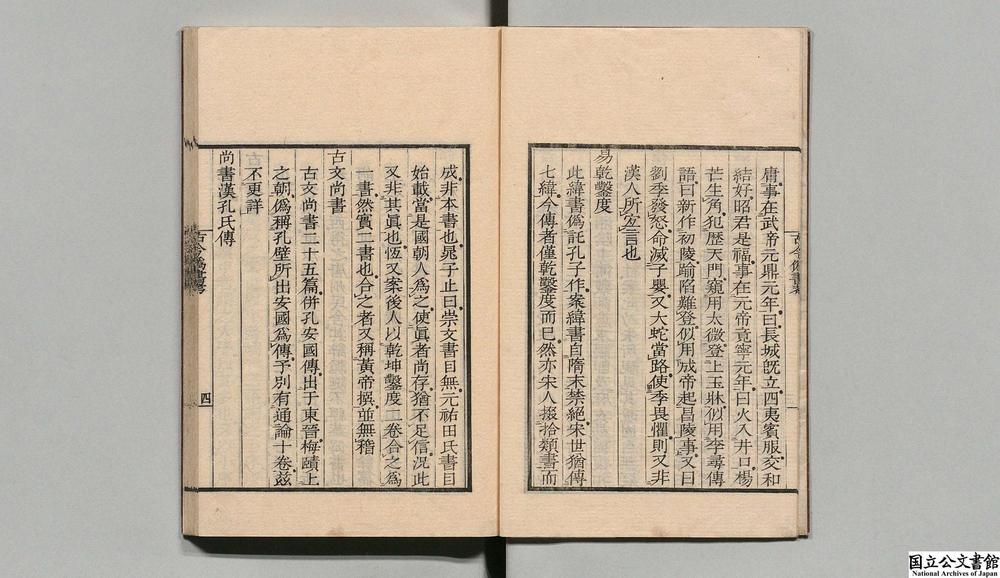 庸事在武帝元鼎元年曰長城既立四夷賓服交和
結好昭君是福事在元帝竟寧元年曰火入井口楊
芒生角犯歷天門窺用太微登上玉牀似用李尋傳
語曰新作初陵踰陷難登似用成帝起昌陵事又曰
劉季發怒命滅子嬰又大蛇當路使季畏懼則又非
漢人所宐言也
易乾鑿度
此緯書偽託孔子作案緯書自隋末禁絕宋世猶傳
七緯今傳者僅乾鑿度而已然亦宋人掇拾類書而
成非本書也晁子止曰崇文書目無元祐田氏書目
始載當是國朝人爲之使眞者尚存猶不足信况此
又非其眞也恆又案後人以乾坤鑿度二卷合之爲
一書然實二書也合之者又稱黃帝撰並無稽
古文尚書
古文尚書二十五篇併孔安國傳出于東晉梅賾上
之朝偽稱孔壁所出安國爲傳予別有通論十卷茲
不更詳
尚書漢孔氏傳
古今偽書考
四
国立公文書館
National Archives of Japan